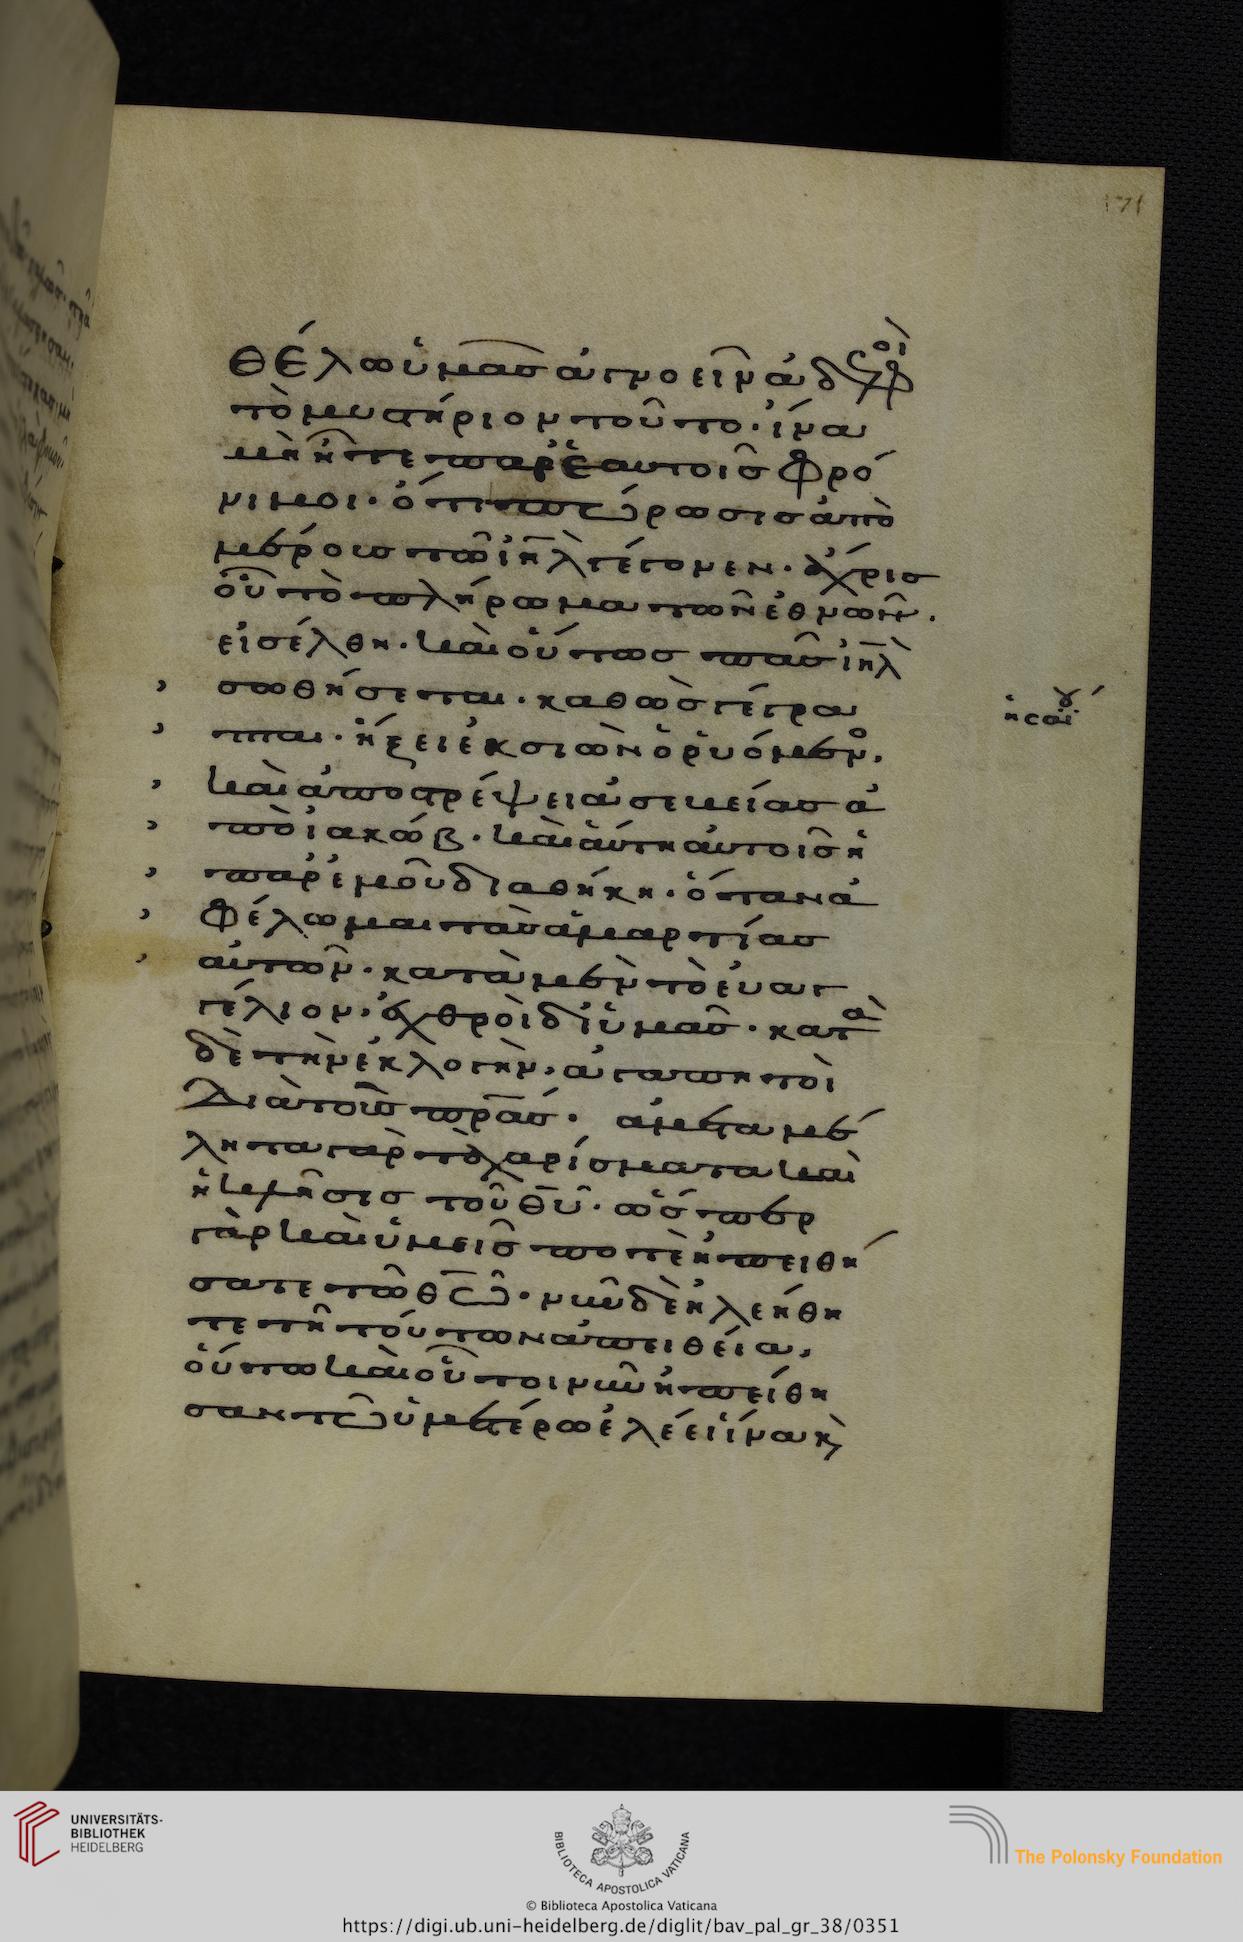 171
θέλω ὑμᾶς ἀγνοεῖν ἀδελφοὶ
τὸ μυστήριον τοῦτο· ἵνα
μὴ ἦτε παρ' ἑαυτοῖς φρό
νιμοι· ὅτι πώρωσις ἀπὸ
μέρους τῶ ιηλ γέγονεν· ἄχρις
οὗ τὸ πλήρωμα τῶν ἐθνῶν·
εἰσέλθη· καὶ οὕτως πᾶς ιηλ
σωθήσεται· καθὼς γέγρα
πται· ἥξει ἐκ σιὼν ὁ ῥυόμενος,
καὶ ἀποστρέψει ἀσεβείας ἀ
πὸ ἰακώβ· καὶ αὕτη αὐτοῖς ἡ
παρ' ἐμοῦ διαθήκη· ὅταν ἀ
φέλωμαι τὰς ἁμαρτίας
αὐτῶν· κατὰ μὲν τὸ εὐαγ
γέλιον, ἐχθροὶ δι' ὑμᾶς· κατὰ
δὲ τὴν ἐκλογὴν, ἀγαπητοὶ
διὰ τοὺς πρας· ἀμεταμέ
λητα γὰρ τὰ χαρίσματα καὶ
ἡ κλῆσις τοῦ θυ· ὥσπερ
γὰρ καὶ ὑμεῖς ποτὲ ἠπειθή
σατε τῶ θω· νῦν δὲ ἠλεήθη
τε τῆ τούτων ἀπειθεία,
οὕτω καὶ οὗτοι νῦν ἠπείθη
σαν τῶ ὑμετέρω ἐλέει ἵνα κὶ
ἡσαΐου
UNIVERSITÄTS-
BIBLIOTHEK
HEIDELBERG
BIBLIOTECA APOSTOLICA VATICANA
The Polonsky Foundation
© Biblioteca Apostolica Vaticana
https://digi.ub.uni-heidelberg.de/diglit/bav_pal_gr_38/0351